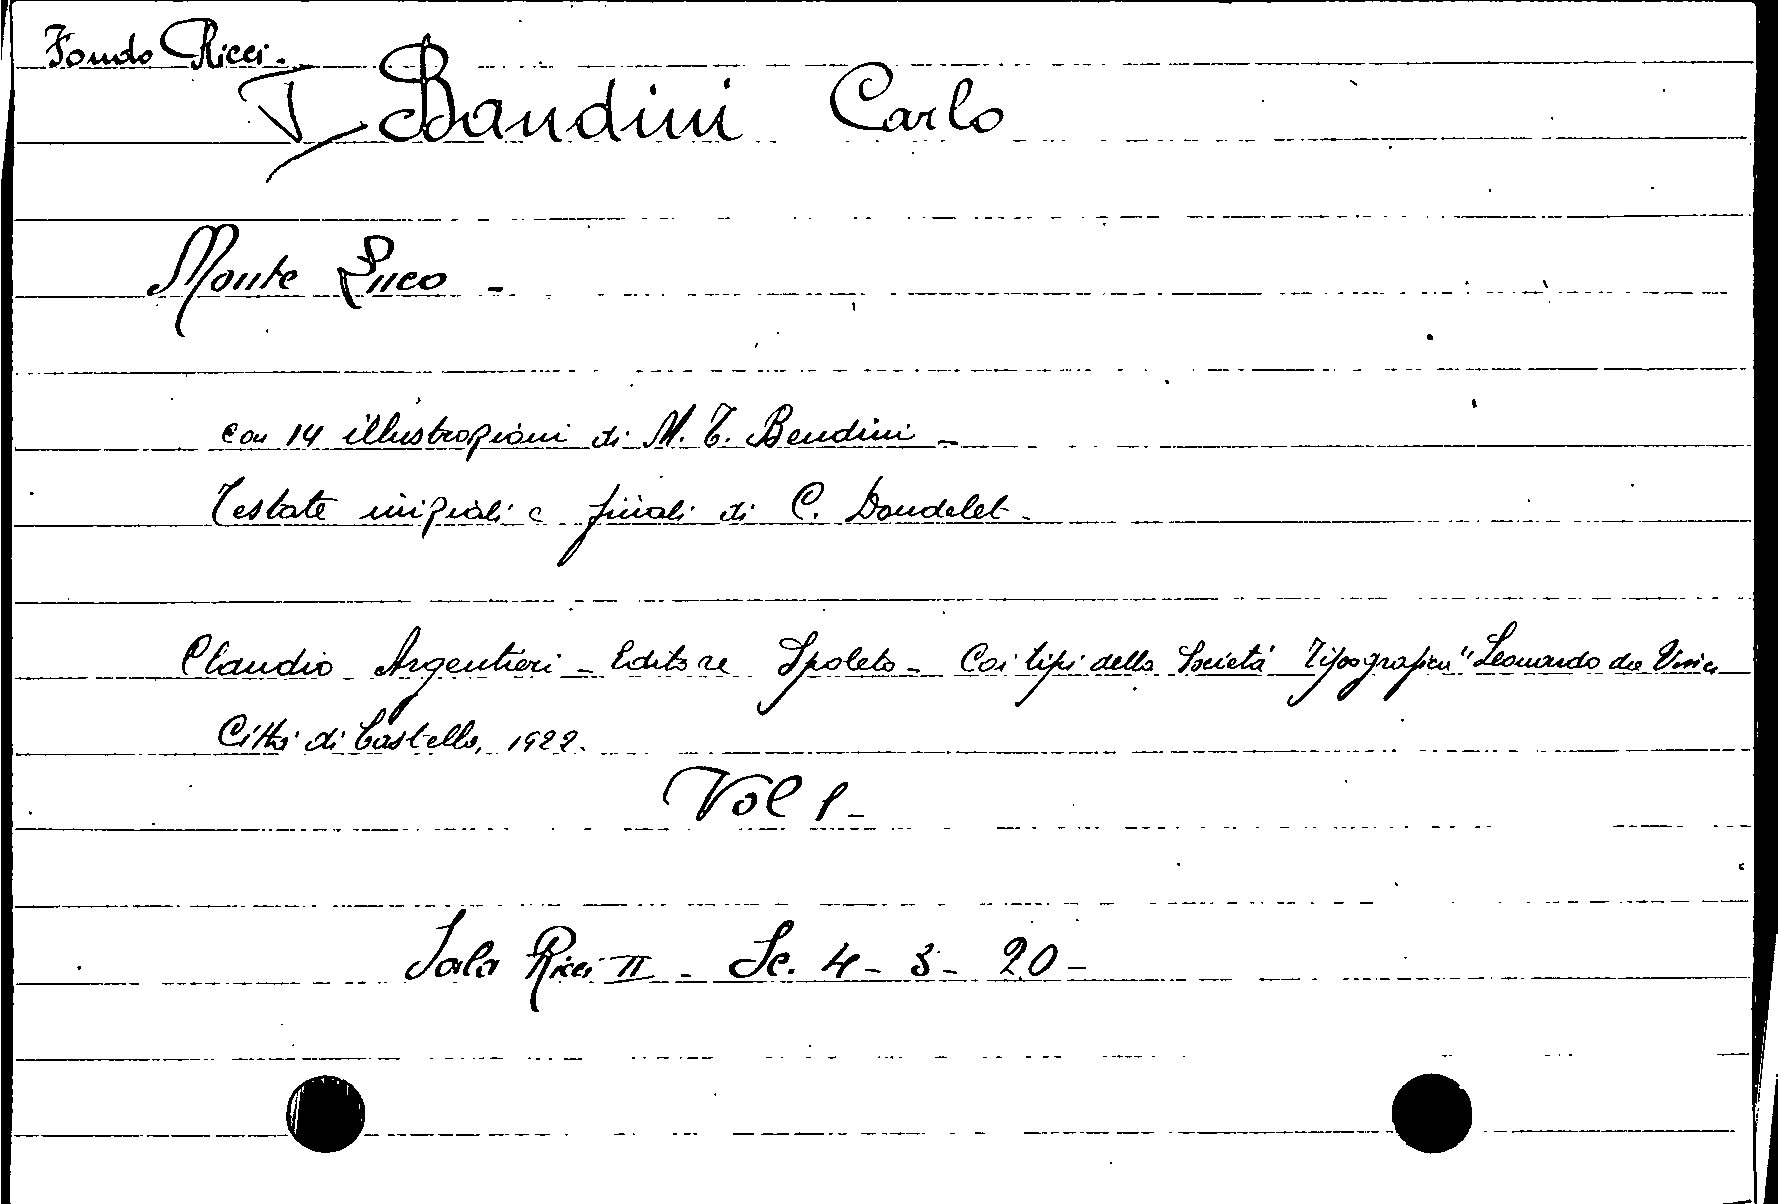 Fondo Ricci.
Bandini Carlo
Monte Luco -
con 14 illustrazioni di M. T. Bandini -
Testate iniziali e finali di C. Doudelet -
Claudio Argentieri - Editore Spoleto - Coi tipi della Società Tipografica "Leonardo da Vinci
Città di Castello, 1922.
Vol 1 -
Sala Ricci II - Sc. 4 - 3 - 20 -